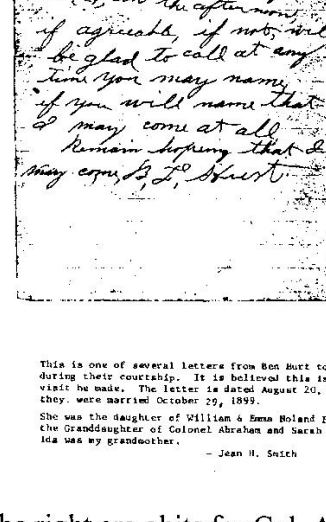 in the afternoon
if agreeable, if not, will
be glad to call at any
time you may name,
if you will name that
I may come at all
Remain hopeing that I
may come, B, L, Hurt.
This is one of several letters from Ben Hurt to
during their courtship. It is believed this is
visit he made. The letter is dated August 20,
they were married October 29, 1899.
She was the daughter of William & Emma Noland
the Granddaughter of Colonel Abraham and Sarah
Ida was my grandmother.
- Jean H. Smith
he right are obits for Col. A